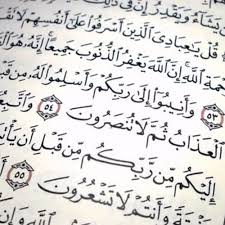 شَآءُ وَيَقْدِرُ إِنَّ
قُلْ يَٰعِبَادِىَ ٱلَّذِينَ أَسْرَفُوا۟ عَلَىٰٓ أَنفُسِهِمْ لَا
مَةِ ٱللَّهِ إِنَّ ٱللَّهَ يَغْفِرُ ٱلذُّنُوبَ جَمِيعًا إِنَّهُۥ هُوَ ٱلْ
٥٣ وَأَنِيبُوٓا۟ إِلَىٰ رَبِّكُمْ وَأَسْلِمُوا۟ لَهُۥ مِن قَبْ
ٱلْعَذَابُ ثُمَّ لَا تُنصَرُونَ ٥٤ وَٱتَّبِعُ
إِلَيْكُم مِّن رَّبِّكُم مِّن قَبْلِ أَن يَأْ
وَأَنتُمْ لَا تَشْعُرُونَ ٥٥